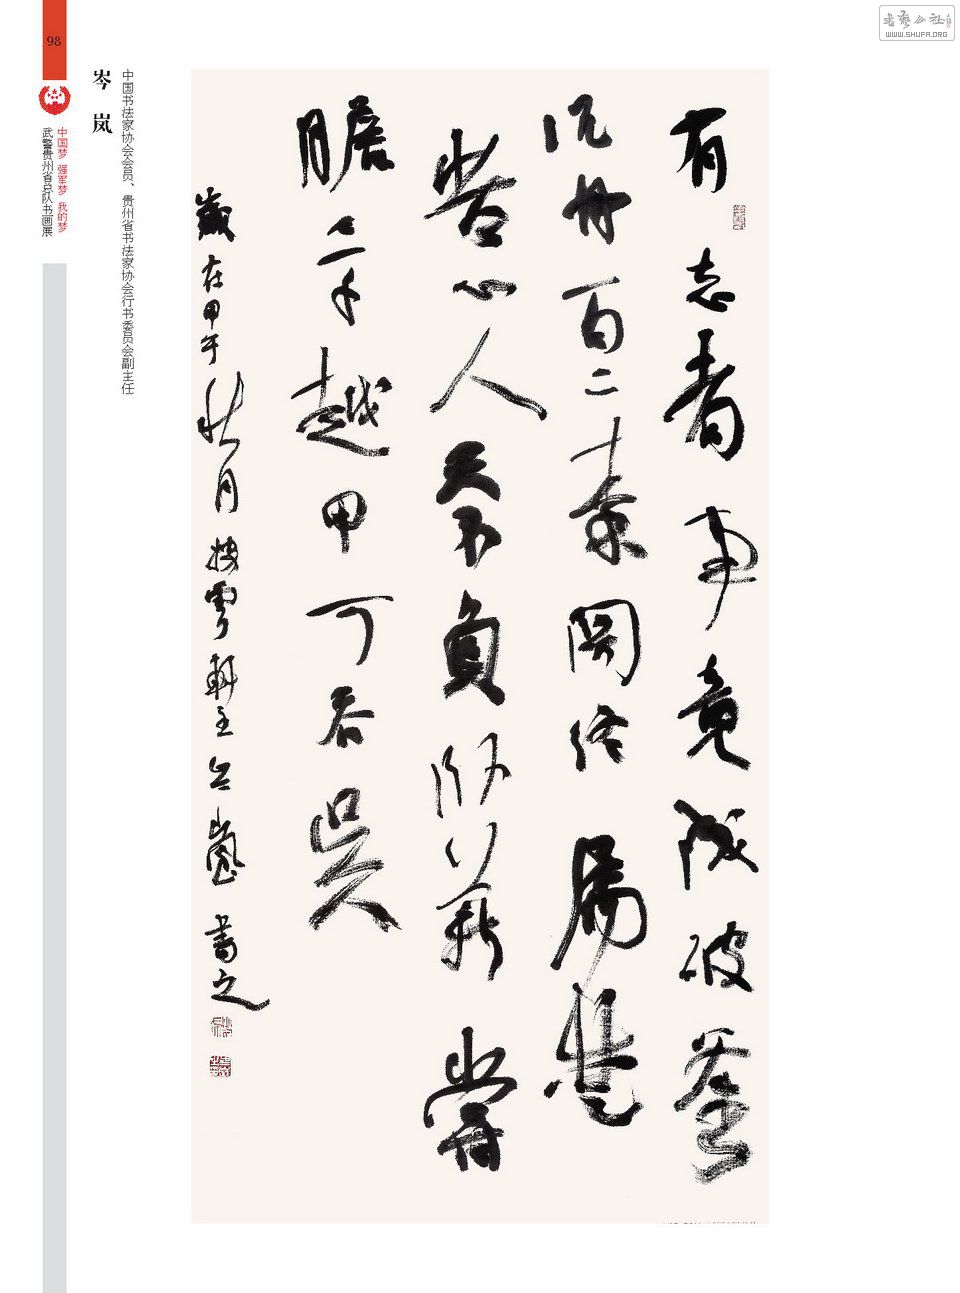 書藝公社
WWW.SHUFA.ORG
98
中国梦 强军梦 我的梦
武警贵州省总队书画展
岑 岚
中国书法家协会会员、贵州省书法家协会行书委员会副主任
有志者事竟成破釜
沉舟百二秦關終屬楚
苦心人天不負卧薪嘗
膽三千越甲可吞吳
歲在甲午秋月披雲軒主岑嵐書之